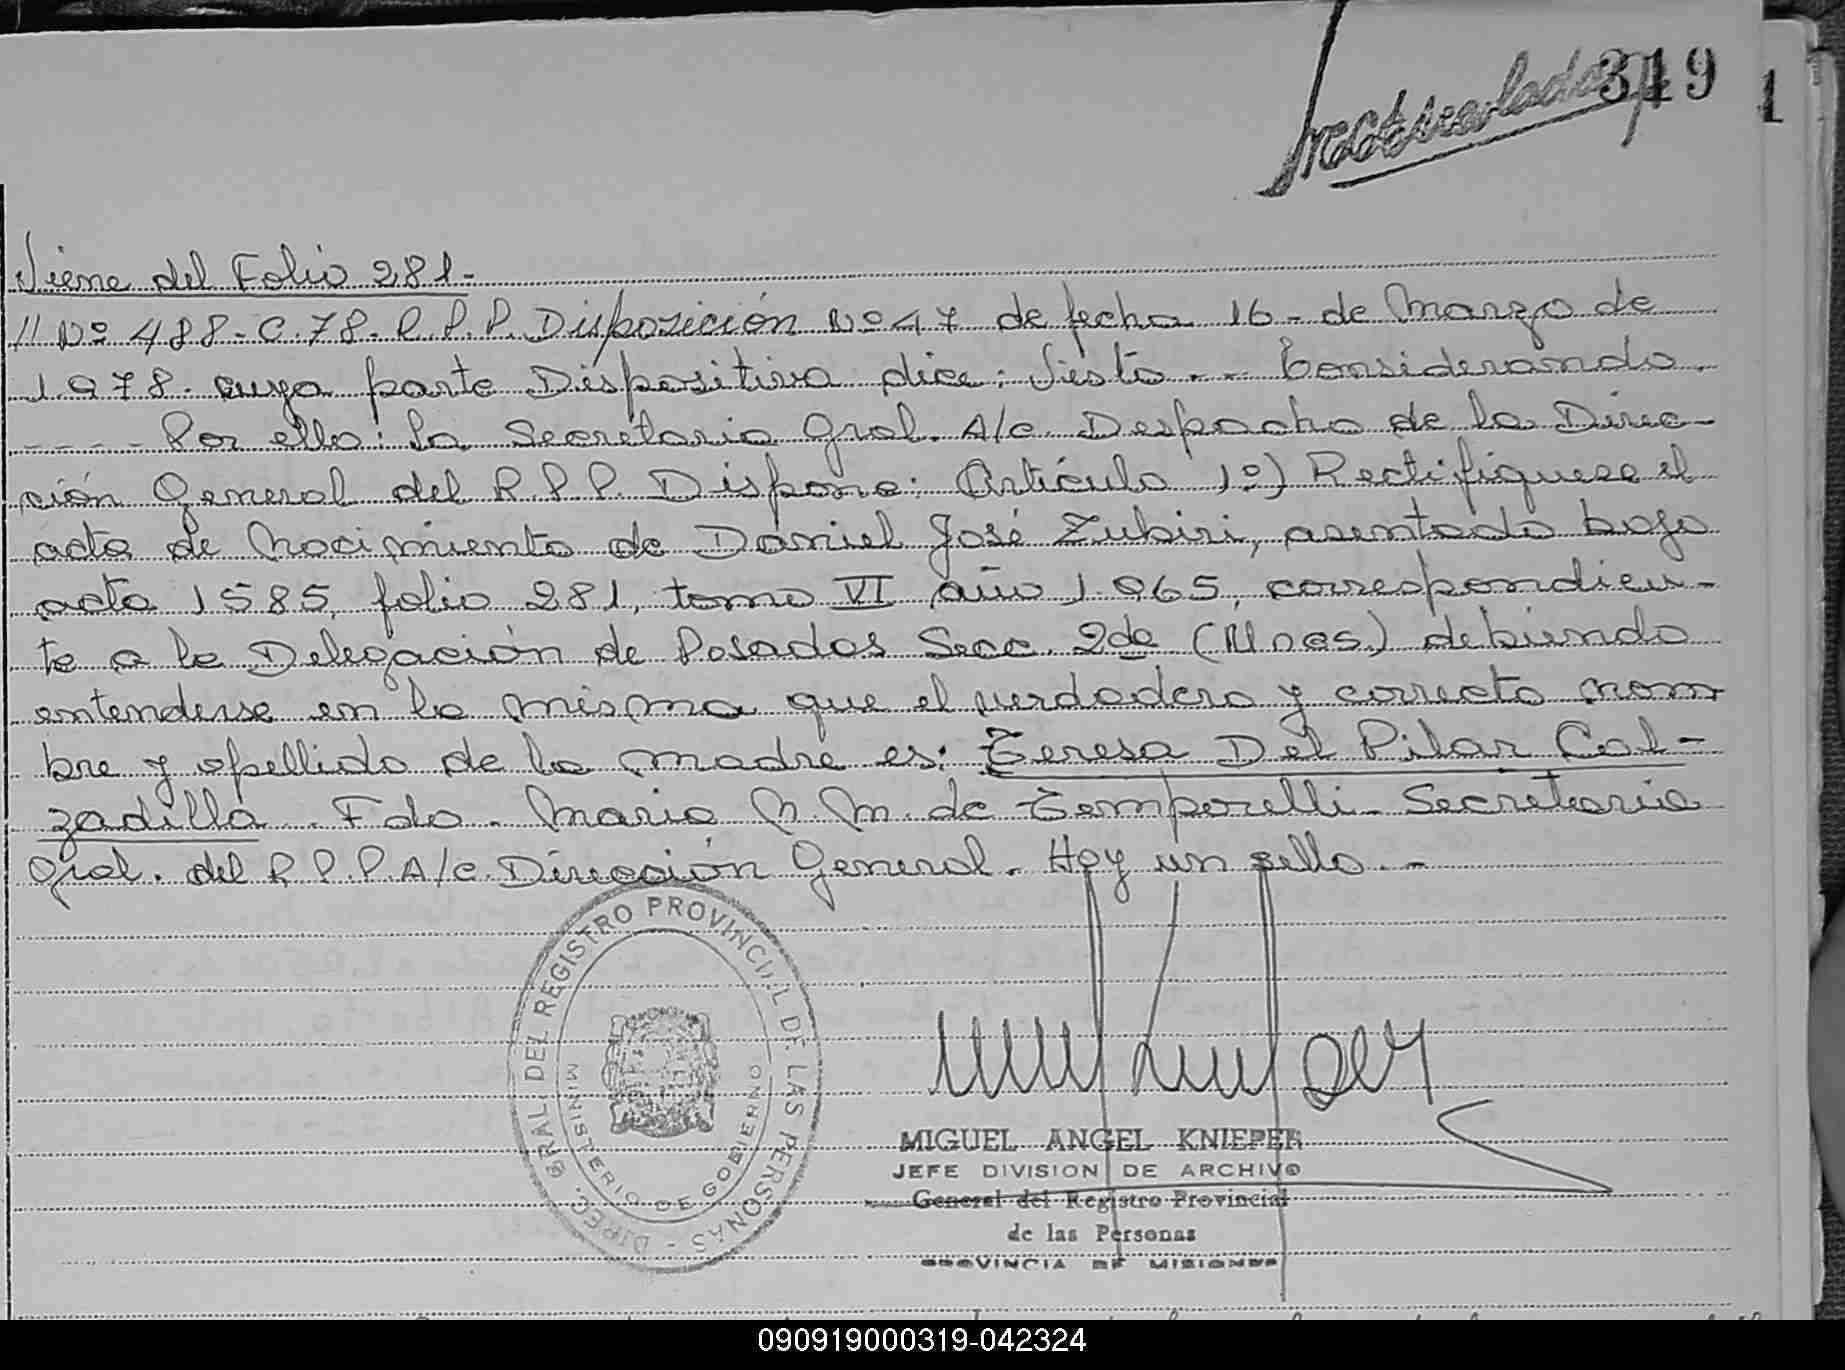 319
1
Inmatriculado
Viene del Folio 281-
// Nº 488-C-78-R.P.P. Disposición Nº 47 de fecha 16- de Marzo de
1.978- cuya parte Dispositiva dice: Visto - - Considerando.
- - - - Por ello: La Secretaria Gral. A/c. Despacho de la Direc-
ción General del R.P.P. Dispone: Artículo 1º) Rectifiquese el
acta de Nacimiento de Daniel José Zubiri, asentado bajo
acta 1585, folio 281, tomo VI año 1.965, correspondien-
te a la Delegación de Posadas Secc. 2da (Mnes.) debiendo
entenderse en la misma que el verdadero y correcto nom-
bre y apellido de la madre es: Teresa Del Pilar Cal-
zadilla. Fdo. Maria N. M. de Temporelli- Secretaria
Gral. del R.P.P. A/c. Dirección General. Hay un sello.-
DIREC. GRAL. DEL REGISTRO PROVINCIAL DE LAS PERSONAS -
MINISTERIO DE GOBIERNO
MIGUEL ANGEL KNIEPER
JEFE DIVISION DE ARCHIVO
General del Registro Provincial
de las Personas
PROVINCIA DE MISIONES
090919000319-042324